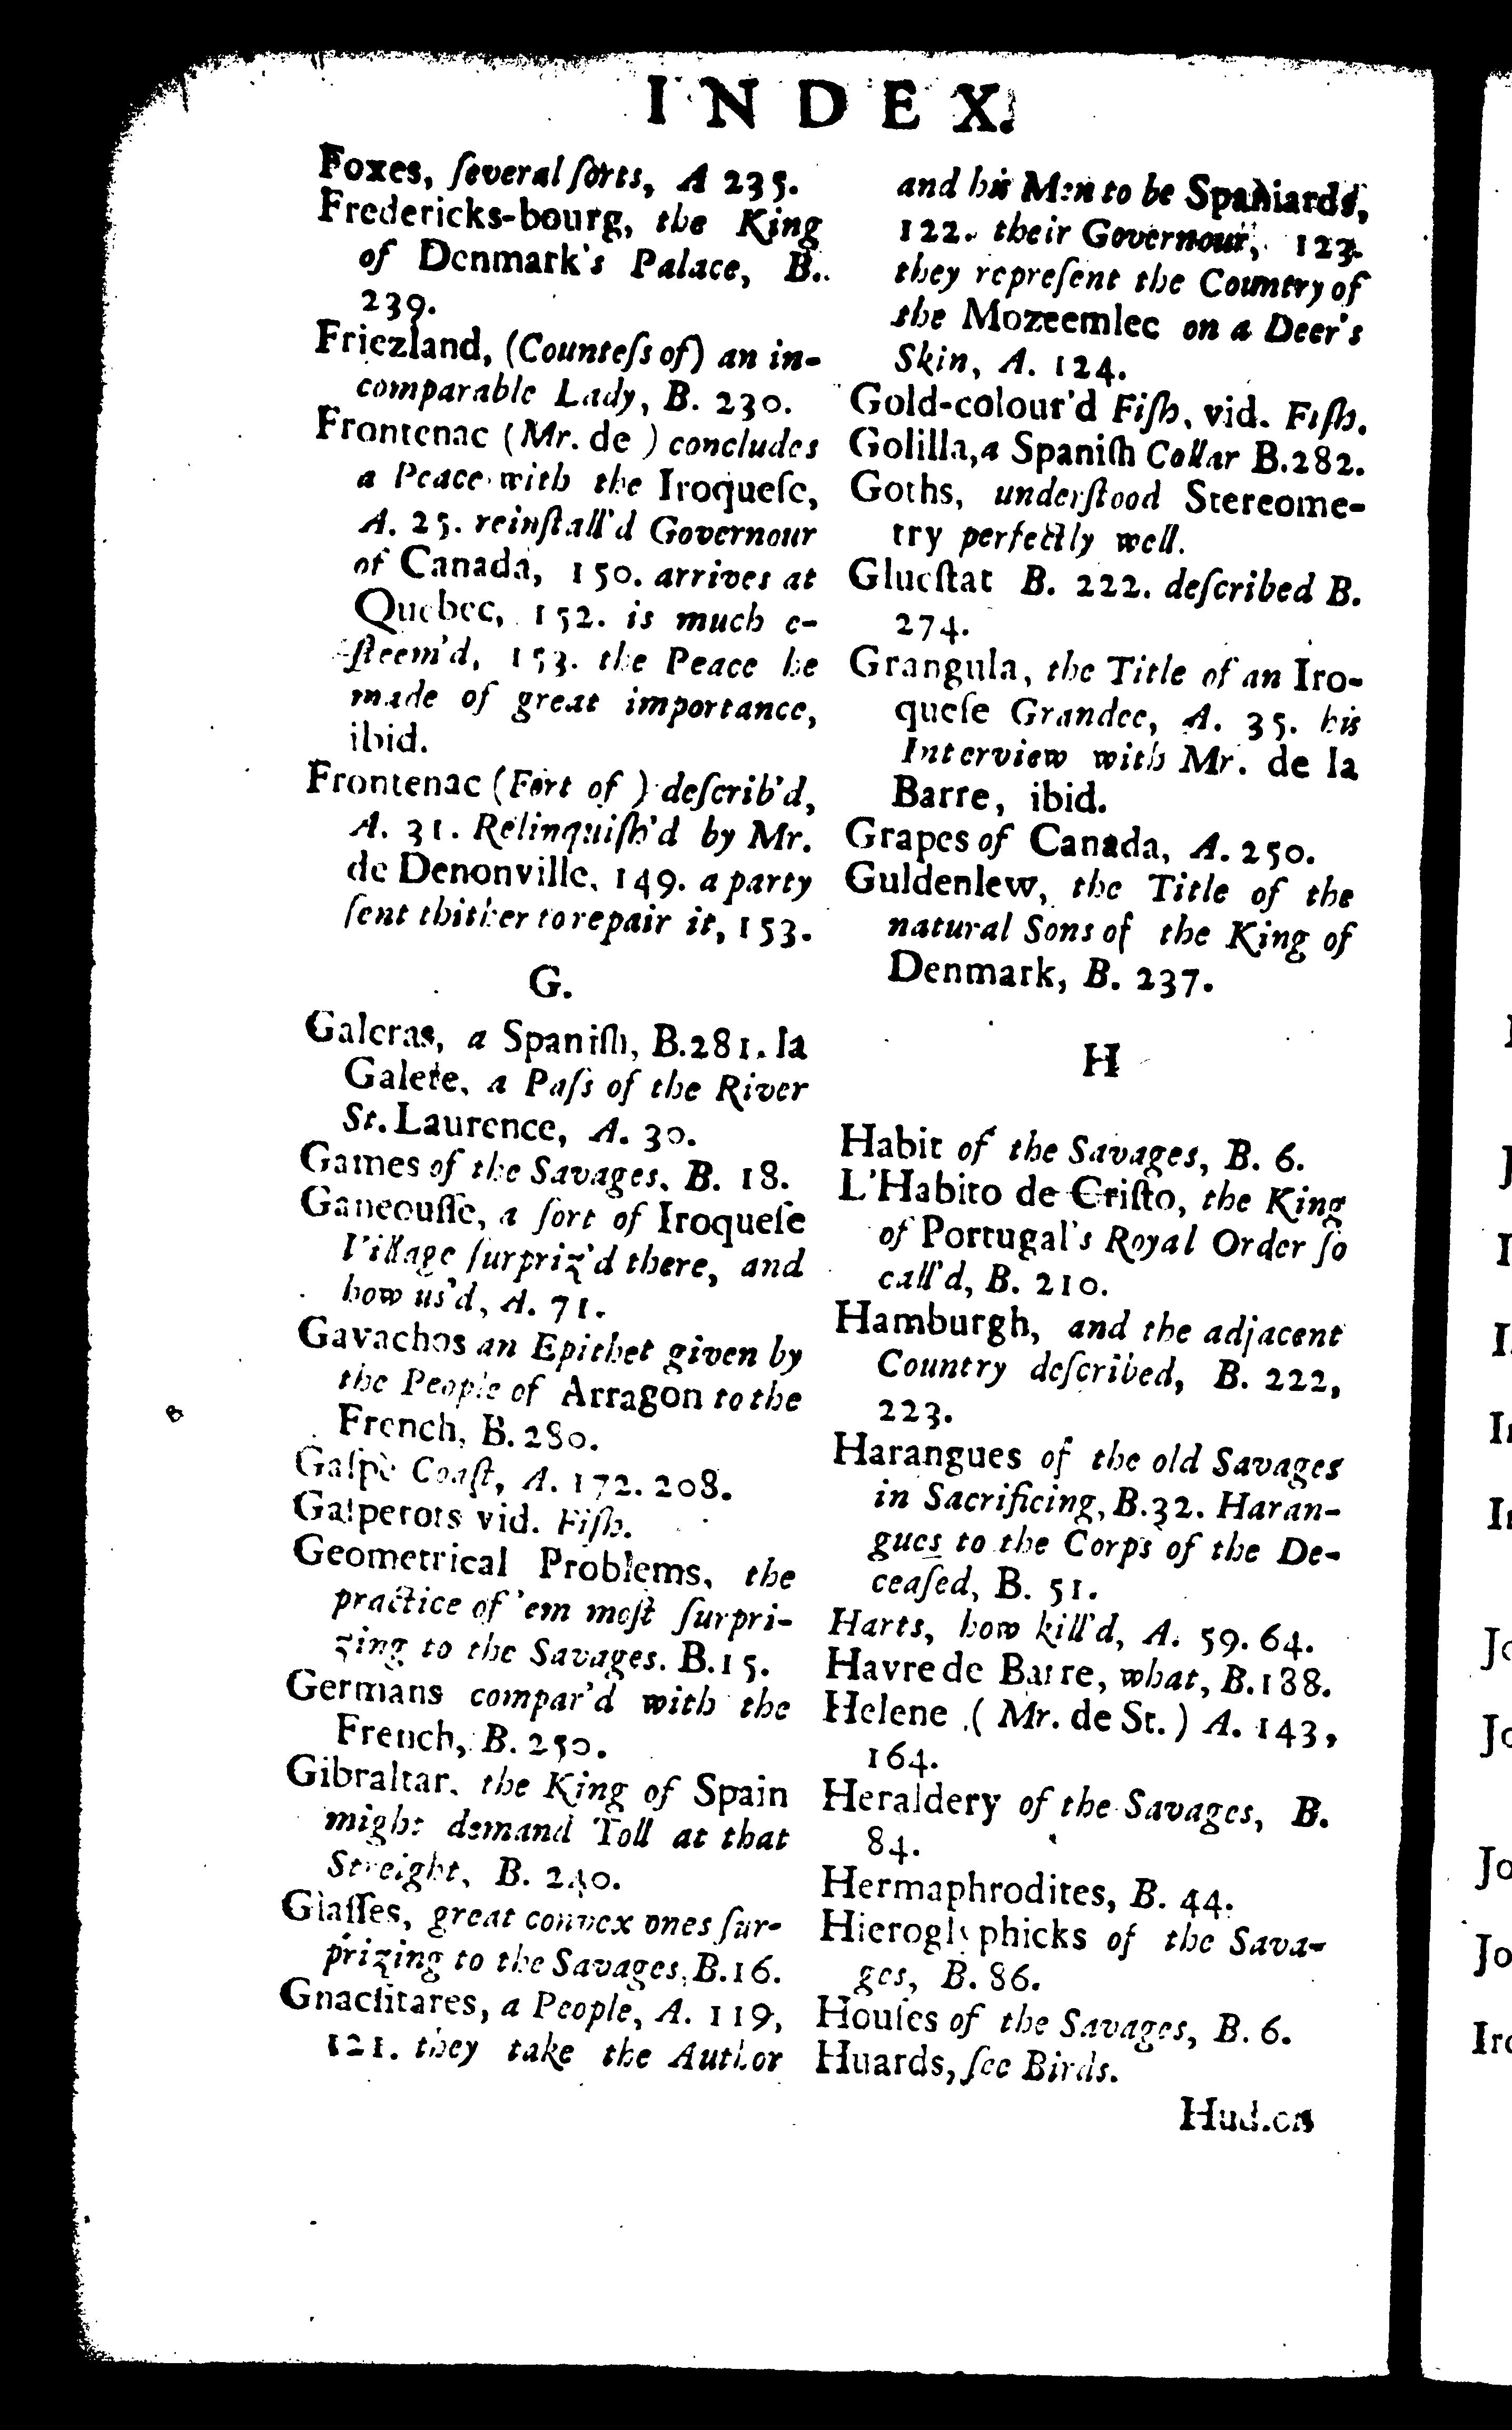 INDEX.
Foxes, ſeveral ſorts, A 235.
Fredericks-bourg, the King
of Denmark's Palace, B.
239.
Friezland, (Counteſs of) an in-
comparable Lady, B. 230.
Frontenac (Mr. de ) concludes
a Peace with the Iroqueſe,
A. 25. reinſtall'd Governour
of Canada, 150. arrives at
Quebec, 152. is much e-
ſteem'd, 153. the Peace he
made of great importance,
ibid.
Frontenac (Fort of ) deſcrib'd,
A. 31. Relinquiſh'd by Mr.
de Denonville, 149. a party
ſent thither to repair it, 153.
G.
Galeras, a Spaniſh, B.281. la
Galete, a Paſs of the River
St. Laurence, A. 30.
Games of the Savages, B. 18.
Ganeouſſe, a ſort of Iroqueſe
Village ſurpriz'd there, and
how us'd, A. 71.
Gavachos an Epithet given by
the People of Arragon to the
French, B. 280.
Gaſpè Coaſt, A. 172. 208.
Gaſperots vid. Fiſh.
Geometrical Problems, the
practice of 'em moſt ſurpri-
zing to the Savages. B.15.
Germans compar'd with the
French, B. 250.
Gibraltar, the King of Spain
might demand Toll at that
Streight, B. 240.
Glaſſes, great convex ones ſur-
prizing to the Savages, B.16.
Gnacſitares, a People, A. 119,
121. they take the Author
and his Men to be Spaniards,
122. their Governour, 123.
they repreſent the Country of
the Mozeemlec on a Deer's
Skin, A. 124.
Gold-colour'd Fiſh, vid. Fiſh.
Golilla, a Spaniſh Collar B.282.
Goths, underſtood Stereome-
try perfectly well.
Glucſtat B. 222. deſcribed B.
274.
Grangula, the Title of an Iro-
queſe Grandee, A. 35. his
Interview with Mr. de la
Barre, ibid.
Grapes of Canada, A. 250.
Guldenlew, the Title of the
natural Sons of the King of
Denmark, B. 237.
H
Habit of the Savages, B. 6.
L'Habito de Criſto, the King
of Portugal's Royal Order ſo
call'd, B. 210.
Hamburgh, and the adjacent
Country deſcribed, B. 222,
223.
Harangues of the old Savages
in Sacrificing, B.32. Haran-
gues to the Corps of the De-
ceaſed, B. 51.
Harts, how kill'd, A. 59. 64.
Havre de Barre, what, B.188.
Helene ( Mr. de St. ) A. 143,
164.
Heraldery of the Savages, B.
84.
Hermaphrodites, B. 44.
Hieroglyphicks of the Sava-
ges, B. 86.
Houſes of the Savages, B. 6.
Huards, ſee Birds.